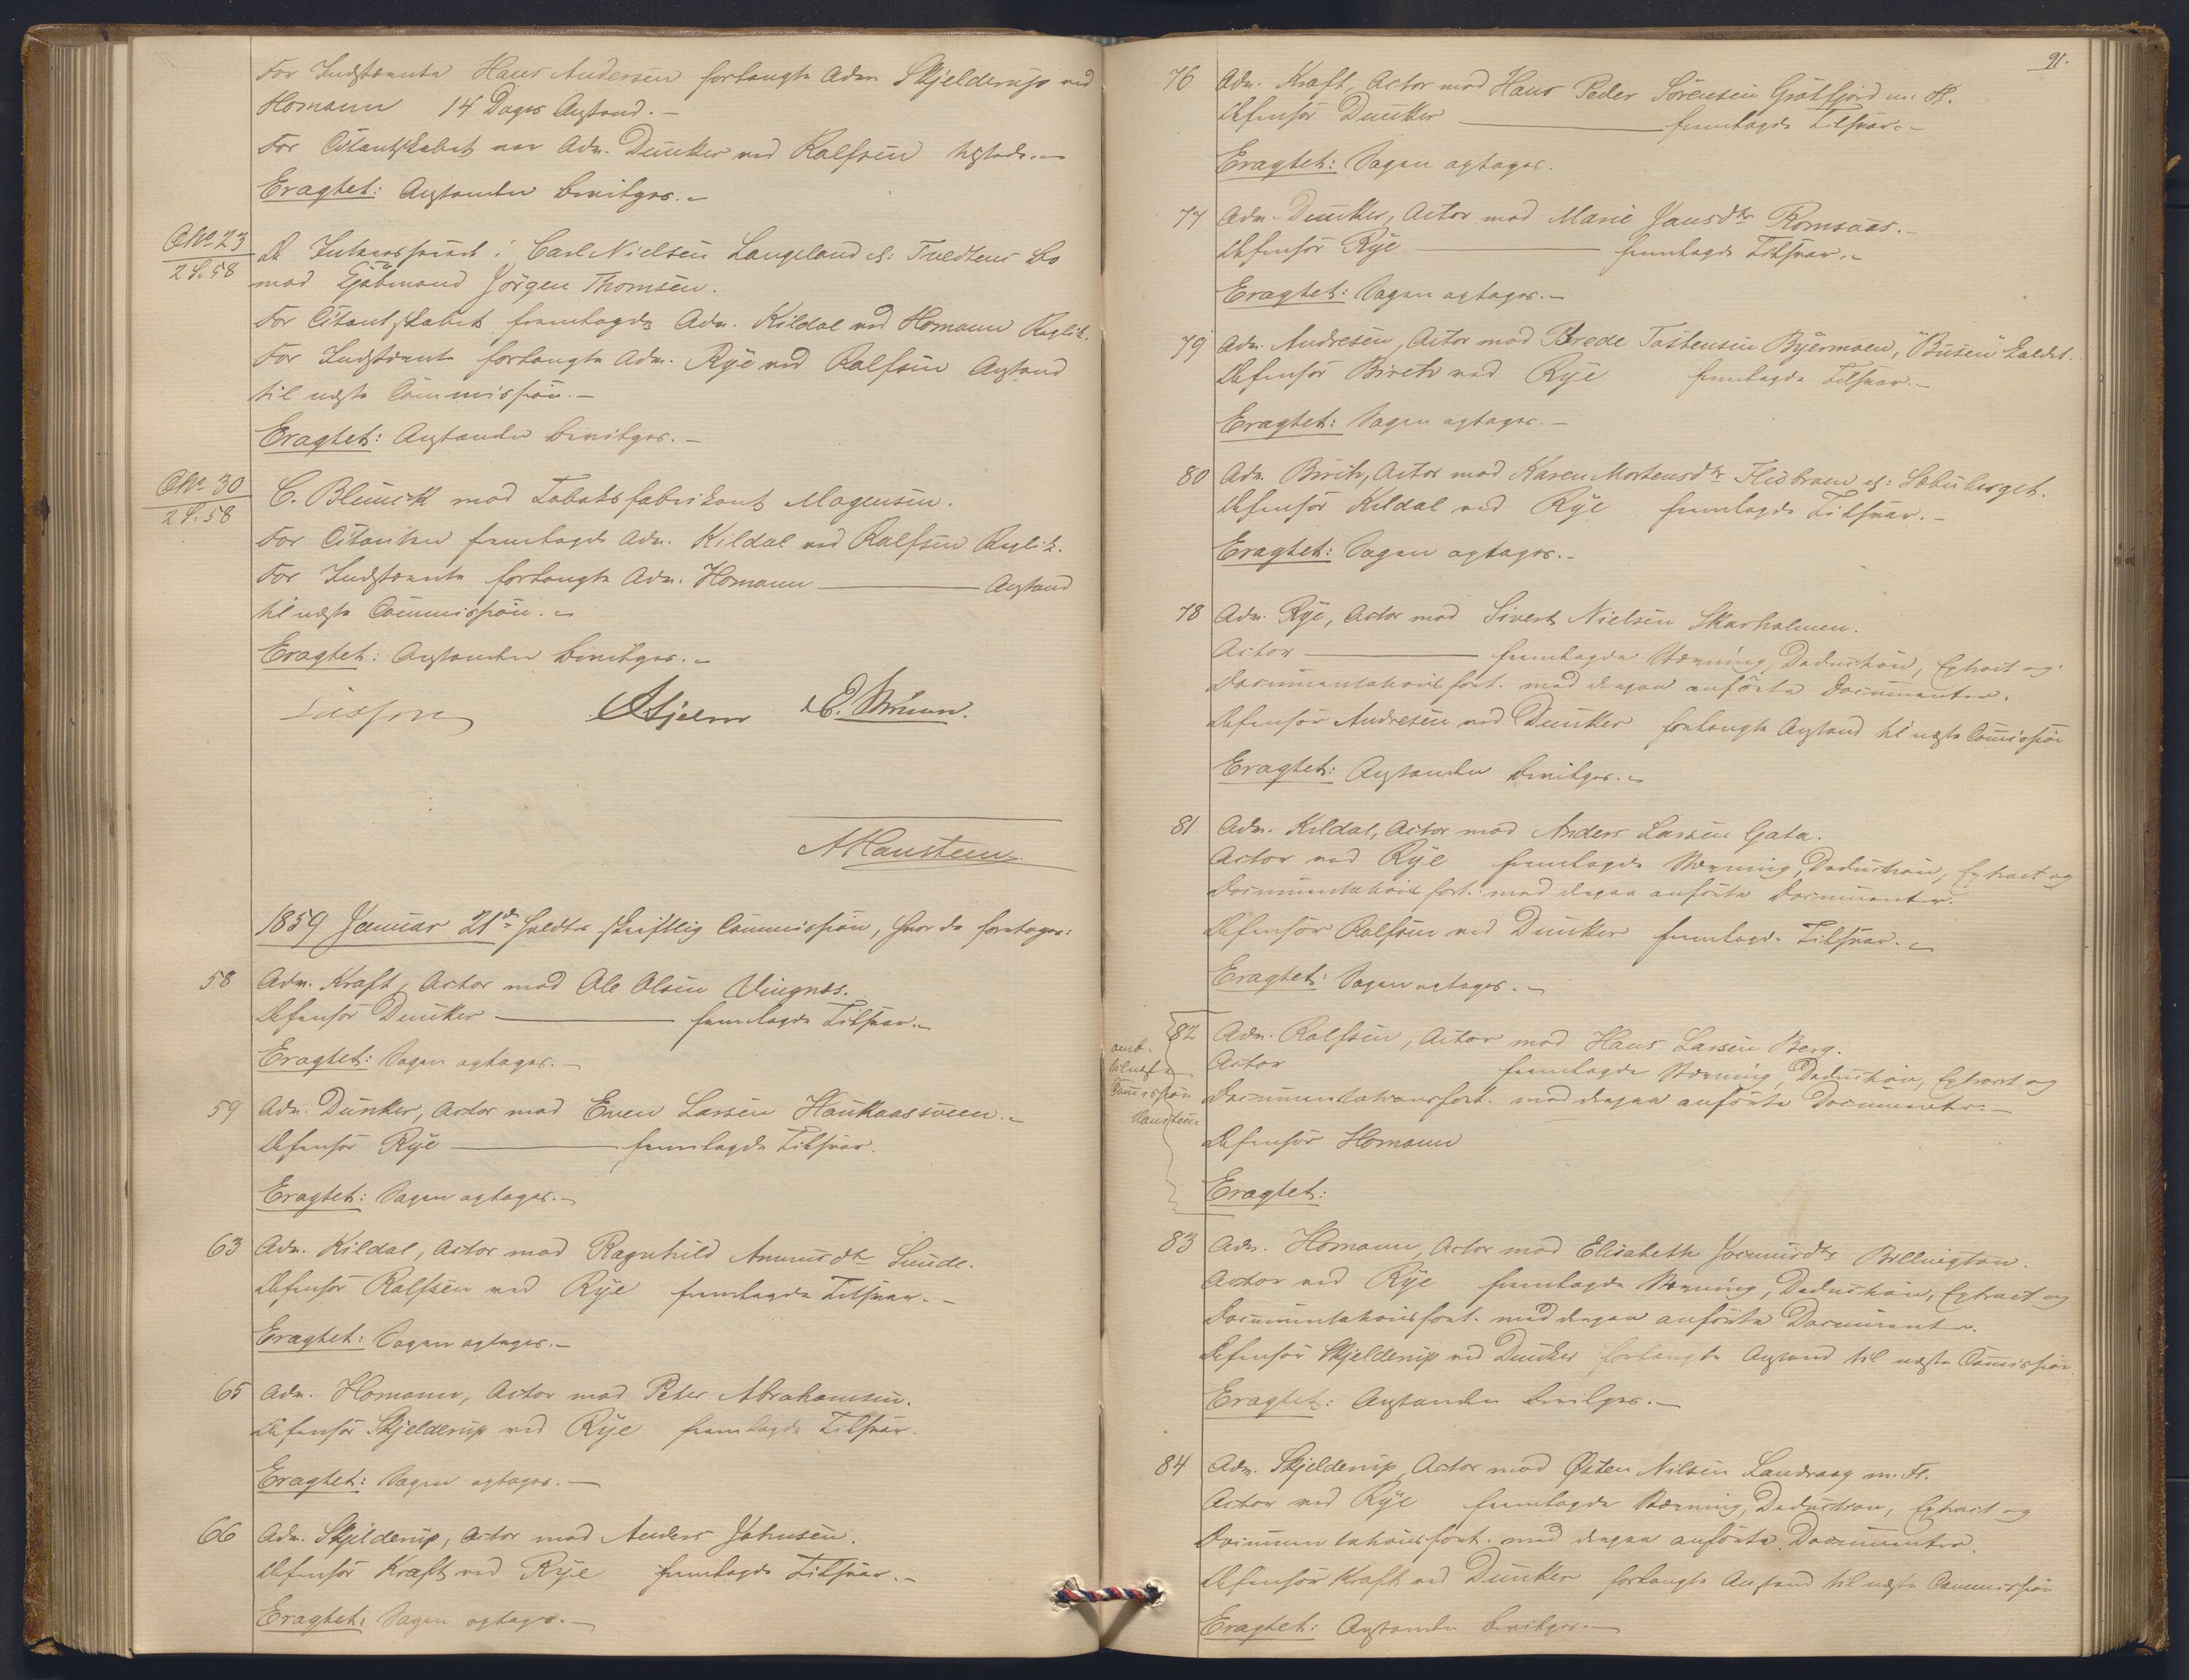 For Indstævnte Hans Andersen forlangte Adv. Skjelderup ved
Homann 14 Dages Anstand.-
For Citantskabet var Adv. Dunker ved Rolfsen tilstede.-
Eragtet: Anstanden bevilges.-
CNo 23
2 S. 58
De Interesserede i Carl Nielsen Langeland el: Tvedtens Bo
mod Gaardmand Jörgen Thomsen.
For Citantskabet fremlagde Adv. Kildal ved Homann Replik.
For Indstævnte forlangte Adv. Rye ved Rolfsen Anstand
til næste Commission.-
Eragtet: Anstanden bevilges.-
CNo 30
2 S. 58
C. Blunck mod Tobaksfabrikant Mogensen.
For Citanten fremlagde Adv. Kildal ved Rolfsen Replik.
For Indstævnte forlangte Adv. Homann Anstand
til næste Commission.-
Eragtet: Anstanden bevilges.-
Hjelm
AHansteen
1859 Januar 21de holdtes skriftlig Commission, hvor da foretoges:
58 Adv. Kraft, Actor mod Ole Olsen Vingnæs.
Defensor Dunker fremlagde Tilsvar.-
Eragtet: Sagen optages.-
59 Adv. Dunker, Actor mod Even Larsen Haukaassveen.-
Defensor Rye fremlagde Tilsvar.
Eragtet: Sagen optages.-
63 Adv. Kildal, Actor mod Ragnhild Amundsdtr Sunde.
Defensor Rolfsen ved Rye fremlagde Tilsvar.-
Eragtet: Sagen optages.-
65 Adv. Homann, Actor mod Peter Abrahamsen.
Defensor Skjelderup ved Rye fremlagde Tilsvar.
Eragtet: Sagen optages.-
66 Adv. Skjelderup, Actor mod Anders Johnsen.
Defensor Kraft ved Rye fremlagde Tilsvar.-
Eragtet: Sagen optages.-
91.
76 Adv. Kraft, Actor mod Hans Peder Sörensen Grötfjord m. Fl.
Defensor Dunker fremlagde Tilsvar.-
Eragtet: Sagen optages.
77 Adv. Dunker, Actor mod Marie Jansdtr Romsaas.-
Defensor Rye fremlagde Tilsvar.-
Eragtet: Sagen optages.-
79 Adv. Andresen, Actor mod Brede Tostensen Byermoen, "Busen" kaldet.
Defensor Birch ved Rye fremlagde Tilsvar.-
Eragtet: Sagen optages.-
80 Adv. Birch, Actor mod Karen Mortensdtr
Defensor Kildal ved Rye fremlagde Tilsvar.-
Eragtet: Sagen optages.-
78 Adv. Rye, Actor mod Sivert Nielsen Skarholmen.
Actor fremlagde Stævning, Deduction, Extract og
Documentationsfort. med derpaa anförte Documenter.
Defensor Andresen ved Dunker forlangte Anstand til næste Commission
Eragtet: Anstanden bevilges.-
81 Adv. Kildal, Actor mod Anders Larsen Gata.
Actor ved Rye fremlagde Stævning, Deduction, Extract og
Documentationsfort. med derpaa anförte Documenter.
Defensor Rolfsen ved Dunker fremlagde Tilsvar.-
Eragtet: Sagen optages.-
82 Adv. Rolfsen, Actor mod Hans Larsen Berg.
Actor fremlagde Stævning, Deduction, Extract og
Documentationsfort. med derpaa anförte Documenter.-
Defensor Homann
Eragtet:
til næste
Commission
Hansteen
83 Adv. Homann, Actor mod Elisabeth Billington.
Actor ved Rye fremlagde Stævning, Deduction, Extract og
Documentationsfort. med derpaa anförte Documenter.
Defensor Skjelderup ved Dunker forlangte Anstand til næste Commission.
Eragtet: Anstanden bevilges.-
84 Adv. Skjelderup, Actor mod Østen Nilsen Landvaag m. Fl.
Actor ved Rye fremlagde Stævning, Deduction, Extract og
Documentationsfort. med derpaa anförte Documenter.
Defensor Kraft ved Dunker forlangte Anstand til næste Commission
Eragtet: Anstanden bevilges.-